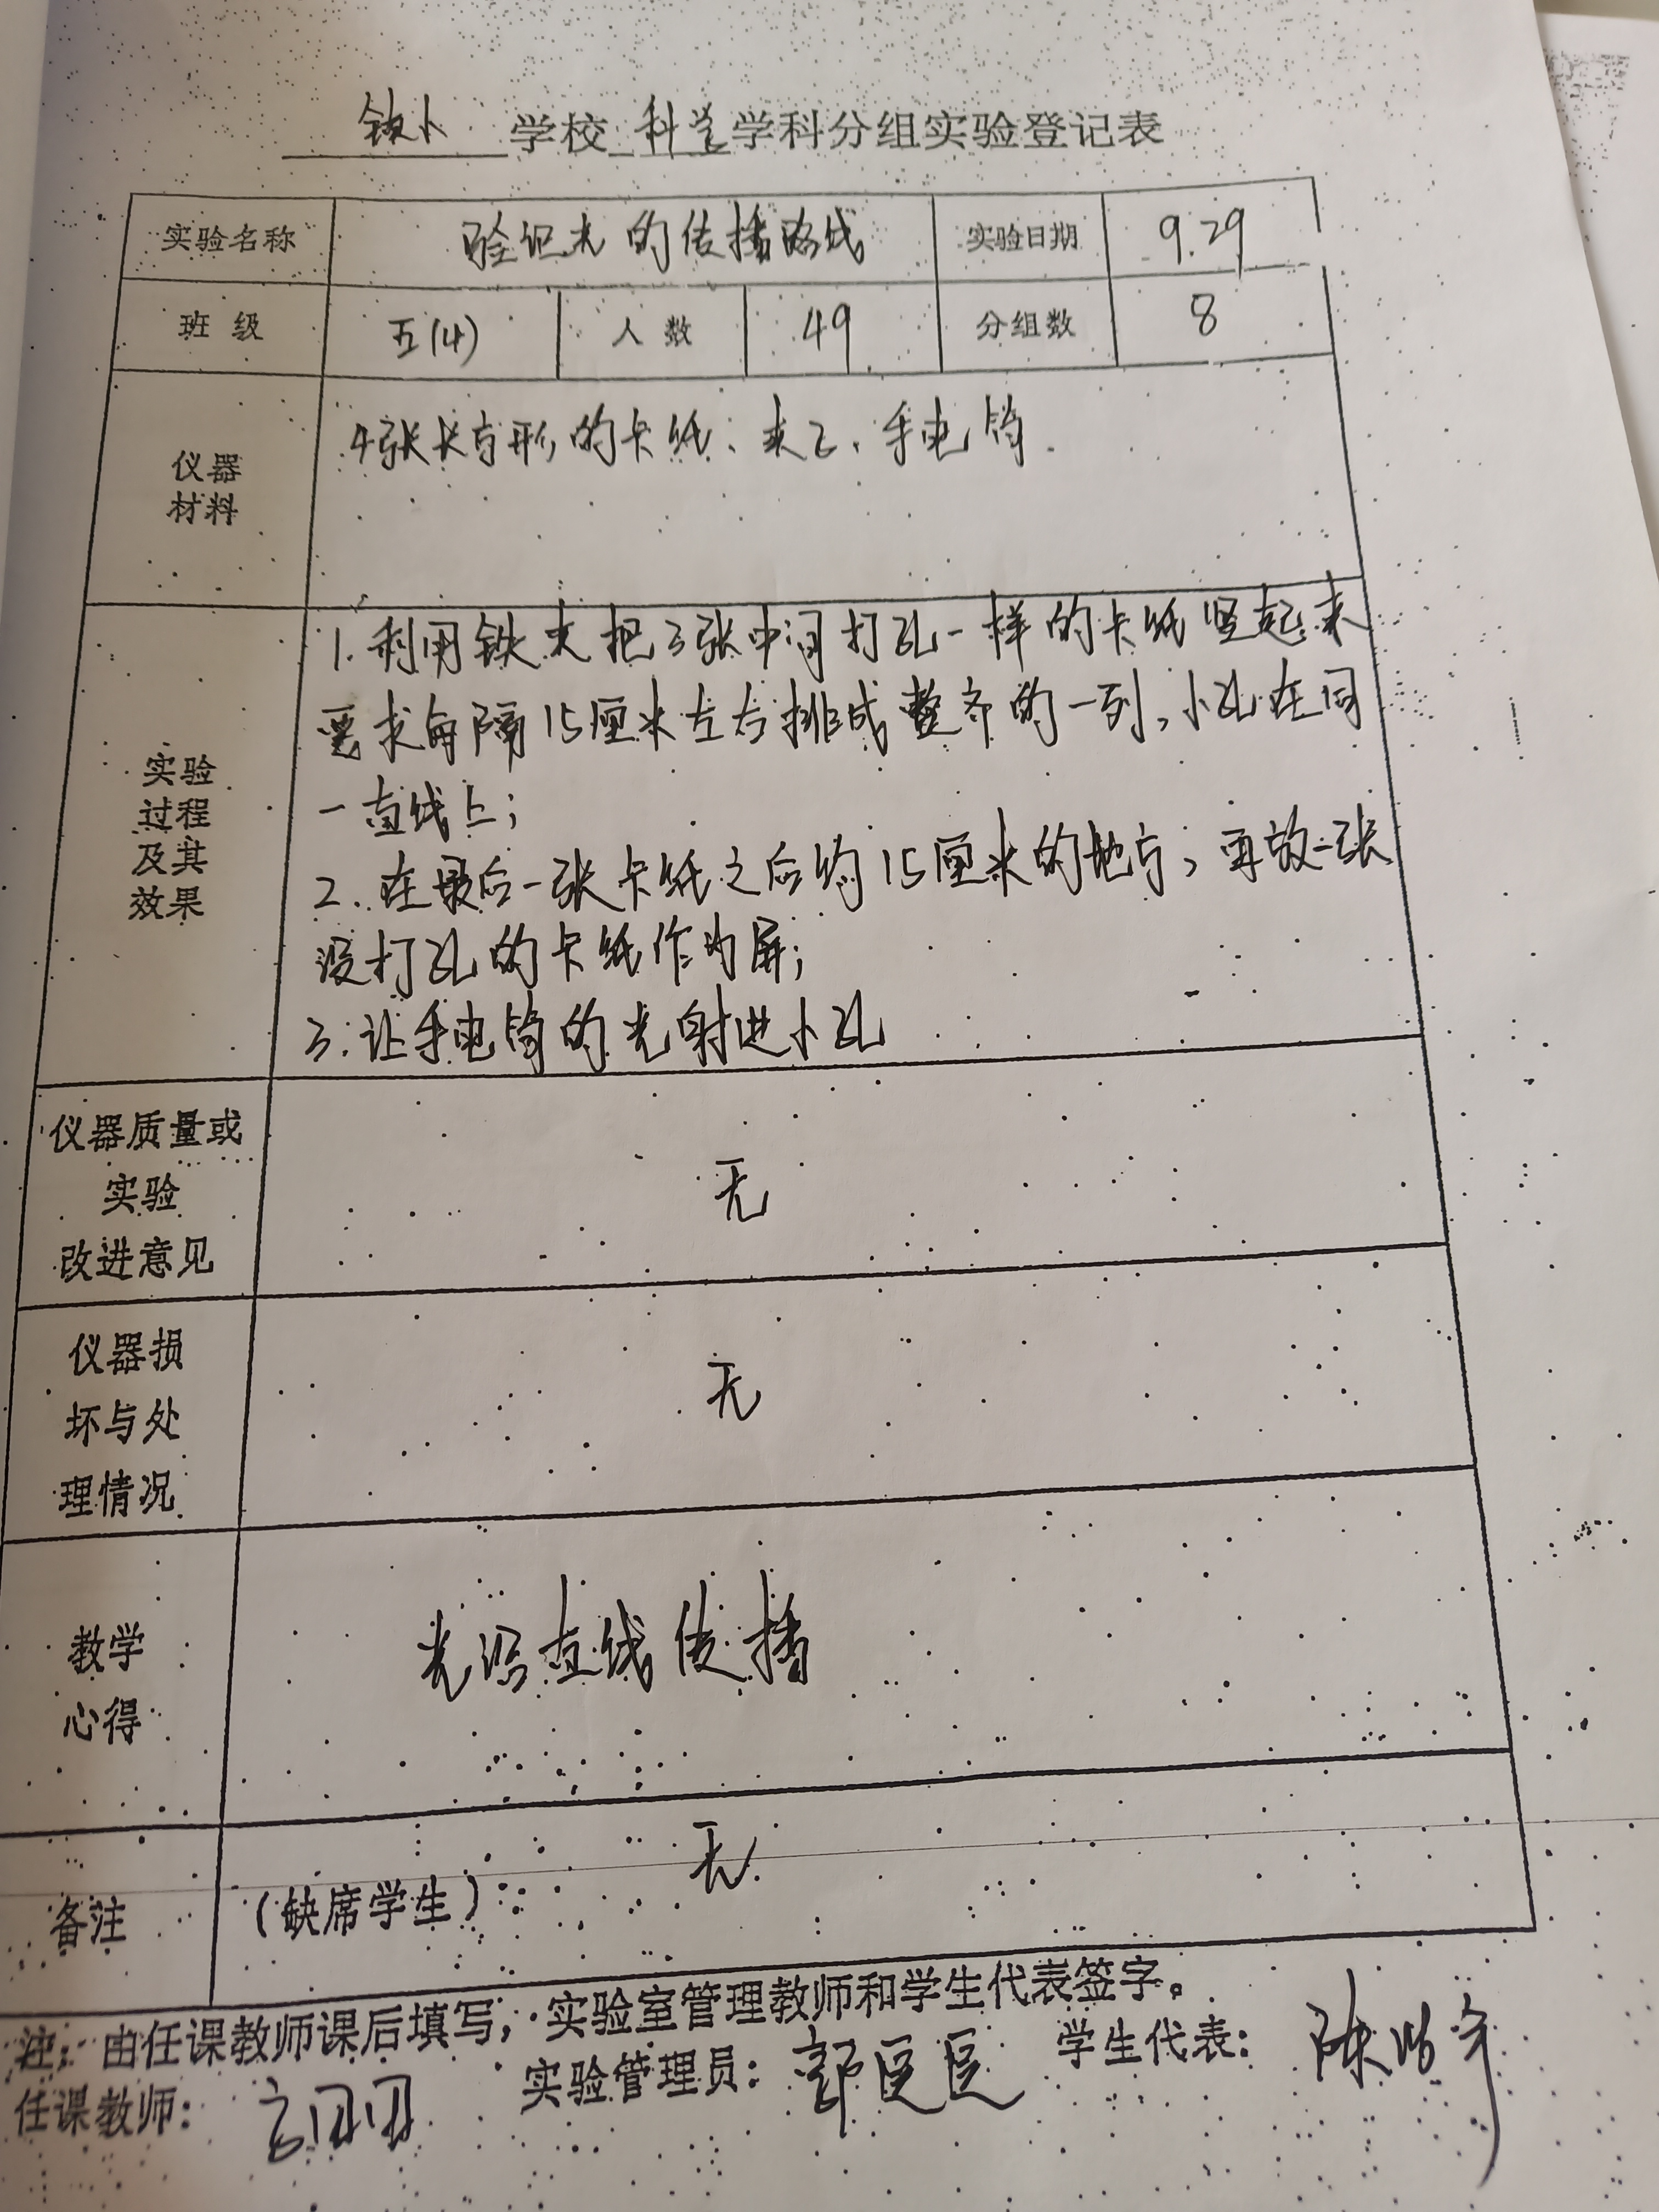 学校 科学 学科分组实验登记表
实验名称 验证光的传播路线 实验日期 9.29
班级 五(4) 人数 49 分组数 8
仪器
材料
4张长方形的卡纸、夹子、手电筒.
实验
过程
及其
效果
1.利用铁夹把3张中间打孔一样的卡纸竖起来
要求每隔15厘米左右排成整齐的一列,小孔在同
一直线上;
2.在最后一张卡纸之后约15厘米的地方,再放一张
没打孔的卡纸作为屏;
3.让手电筒的光射进小孔
仪器质量或
实验
改进意见
无
仪器损
坏与处
理情况
无
教学
心得
光沿直线传播
备注 (缺席学生) 无
注:由任课教师课后填写,实验室管理教师和学生代表签字。
任课教师: 实验管理员: 学生代表: